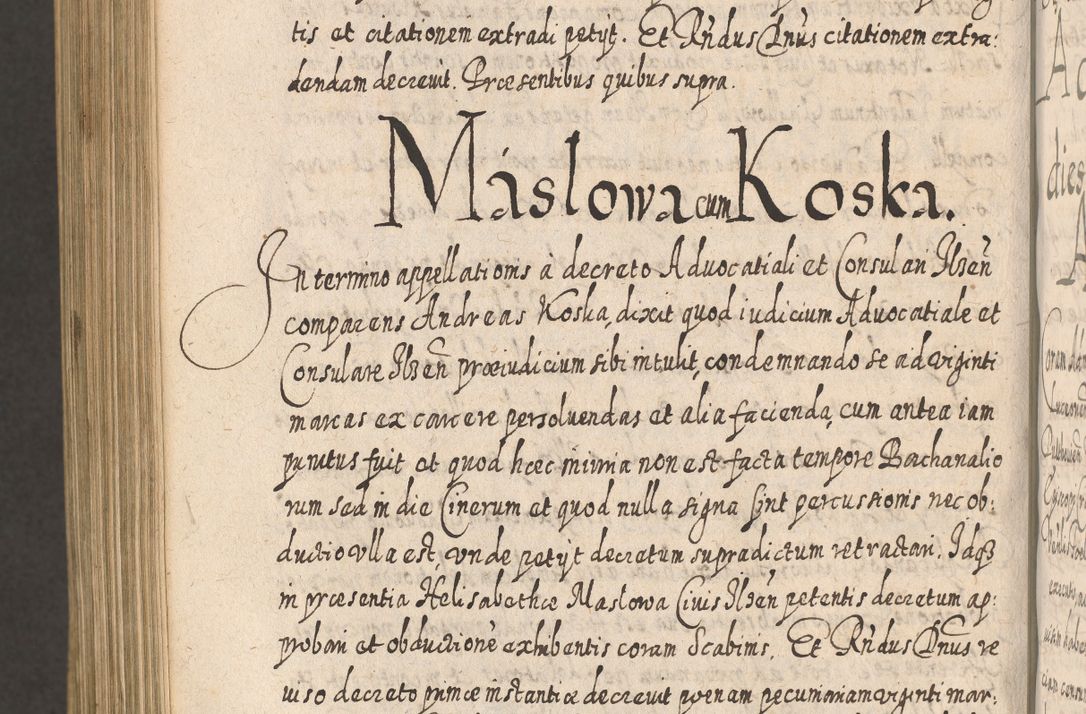 tis et citationem extradi petijt. Et Rńdus Dnūs citationem extra:
dendam decrevit. Præsentibus quibus supra.
Máslowa cum Koska.
In termino appellationis à decreto Advocatiali et Consulari Ilsēn
comparens Andreas Koska, dixit quod iudicium Advocatiale et
Consulare Ilsēn præiudicium sibi intulit, condemnando se ad viginti
marcas ex carcere persoluendas et alia facienda, cum antea iam
punitus fuit et quod hæc iniuria non est facta tempore Bachanalio
rum sed in die Cinerum et quod nulla signa sint percussionis nec ob:
ductio vlla est, vnde petijt decretum supradictum retractari. Idqȝ
in præsentia Helisabethæ Maslowa Civis Ilsēn petentis decretum ap:
probari et obductionē exhibentis coram Scabinis. Et Rńdus Dnūs re
uiso decreto primæ instantiæ decrevit pœnam pecuniariam viginti mar:
Ac
dies
A